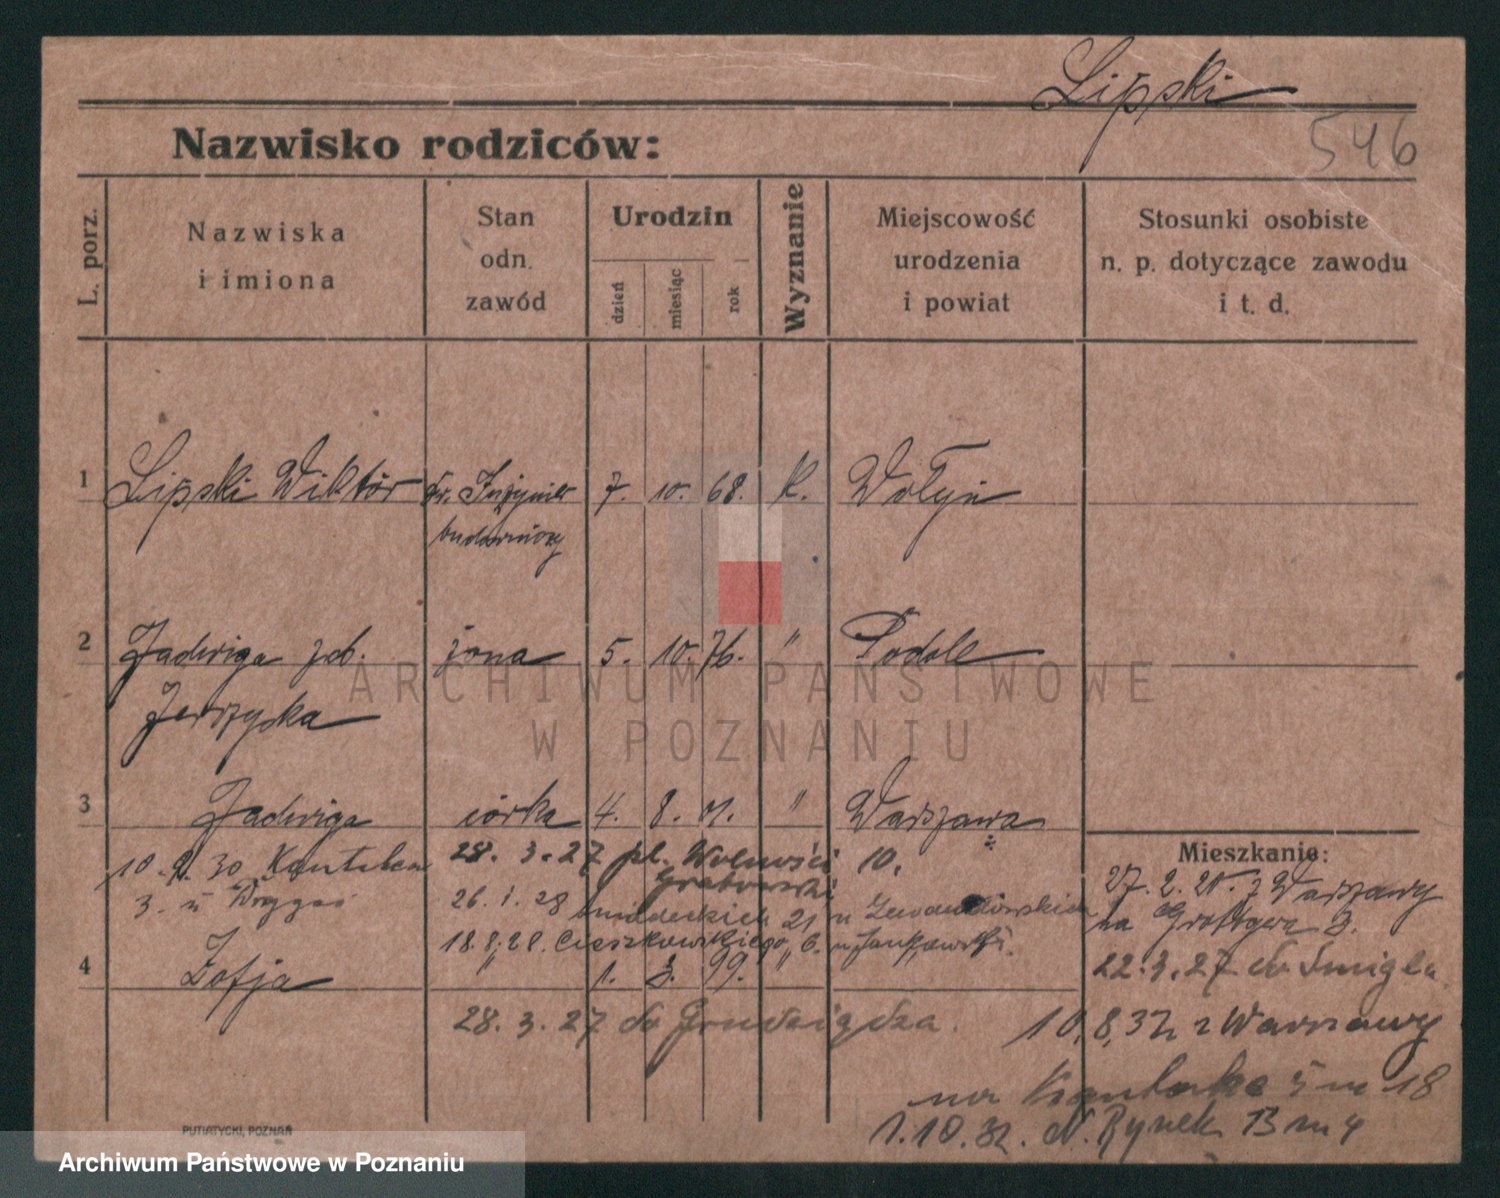 Lipski
Nazwisko rodziców:
546
L. porz.
Nazwiska
i imiona
Stan
odn.
zawód
Urodzin
dzień
miesiąc
rok
Wyznanie
Miejscowość
urodzenia
i powiat
Stosunki osobiste
n. p. dotyczące zawodu
i t. d.
1 Lipski Wiktor Inżynier 7. 10. 68. K. Wołyń
budowniczy
2 Jadwiga żona 5. 10. 76. " Podole
Jerzycka
3 Jadwiga córka 4. 8. 01. " Warszawa
28. 3. 27 pl. Wolności 10.
Grabowski
10. 9. 30
3. u
26. 1. 28 21 u
18. 8. 28. Cieszkowskiego 6. u Jankowski.
4 Zofja " 1. 3. 99. "
28. 3. 27 do Grudziądza.
Mieszkanie:
27. 2. z Warszawy
na Grottgera 3.
22. 3. 27 do Śmigla
10,8,32 z Warszawy
na Kantaka 5 m 18
1.10.32. N. Rynek 13 m 4
PUTIATYCKI, POZNAŃ
ARCHIWUM PAŃSTWOWE
W POZNANIU
Archiwum Państwowe w Poznaniu